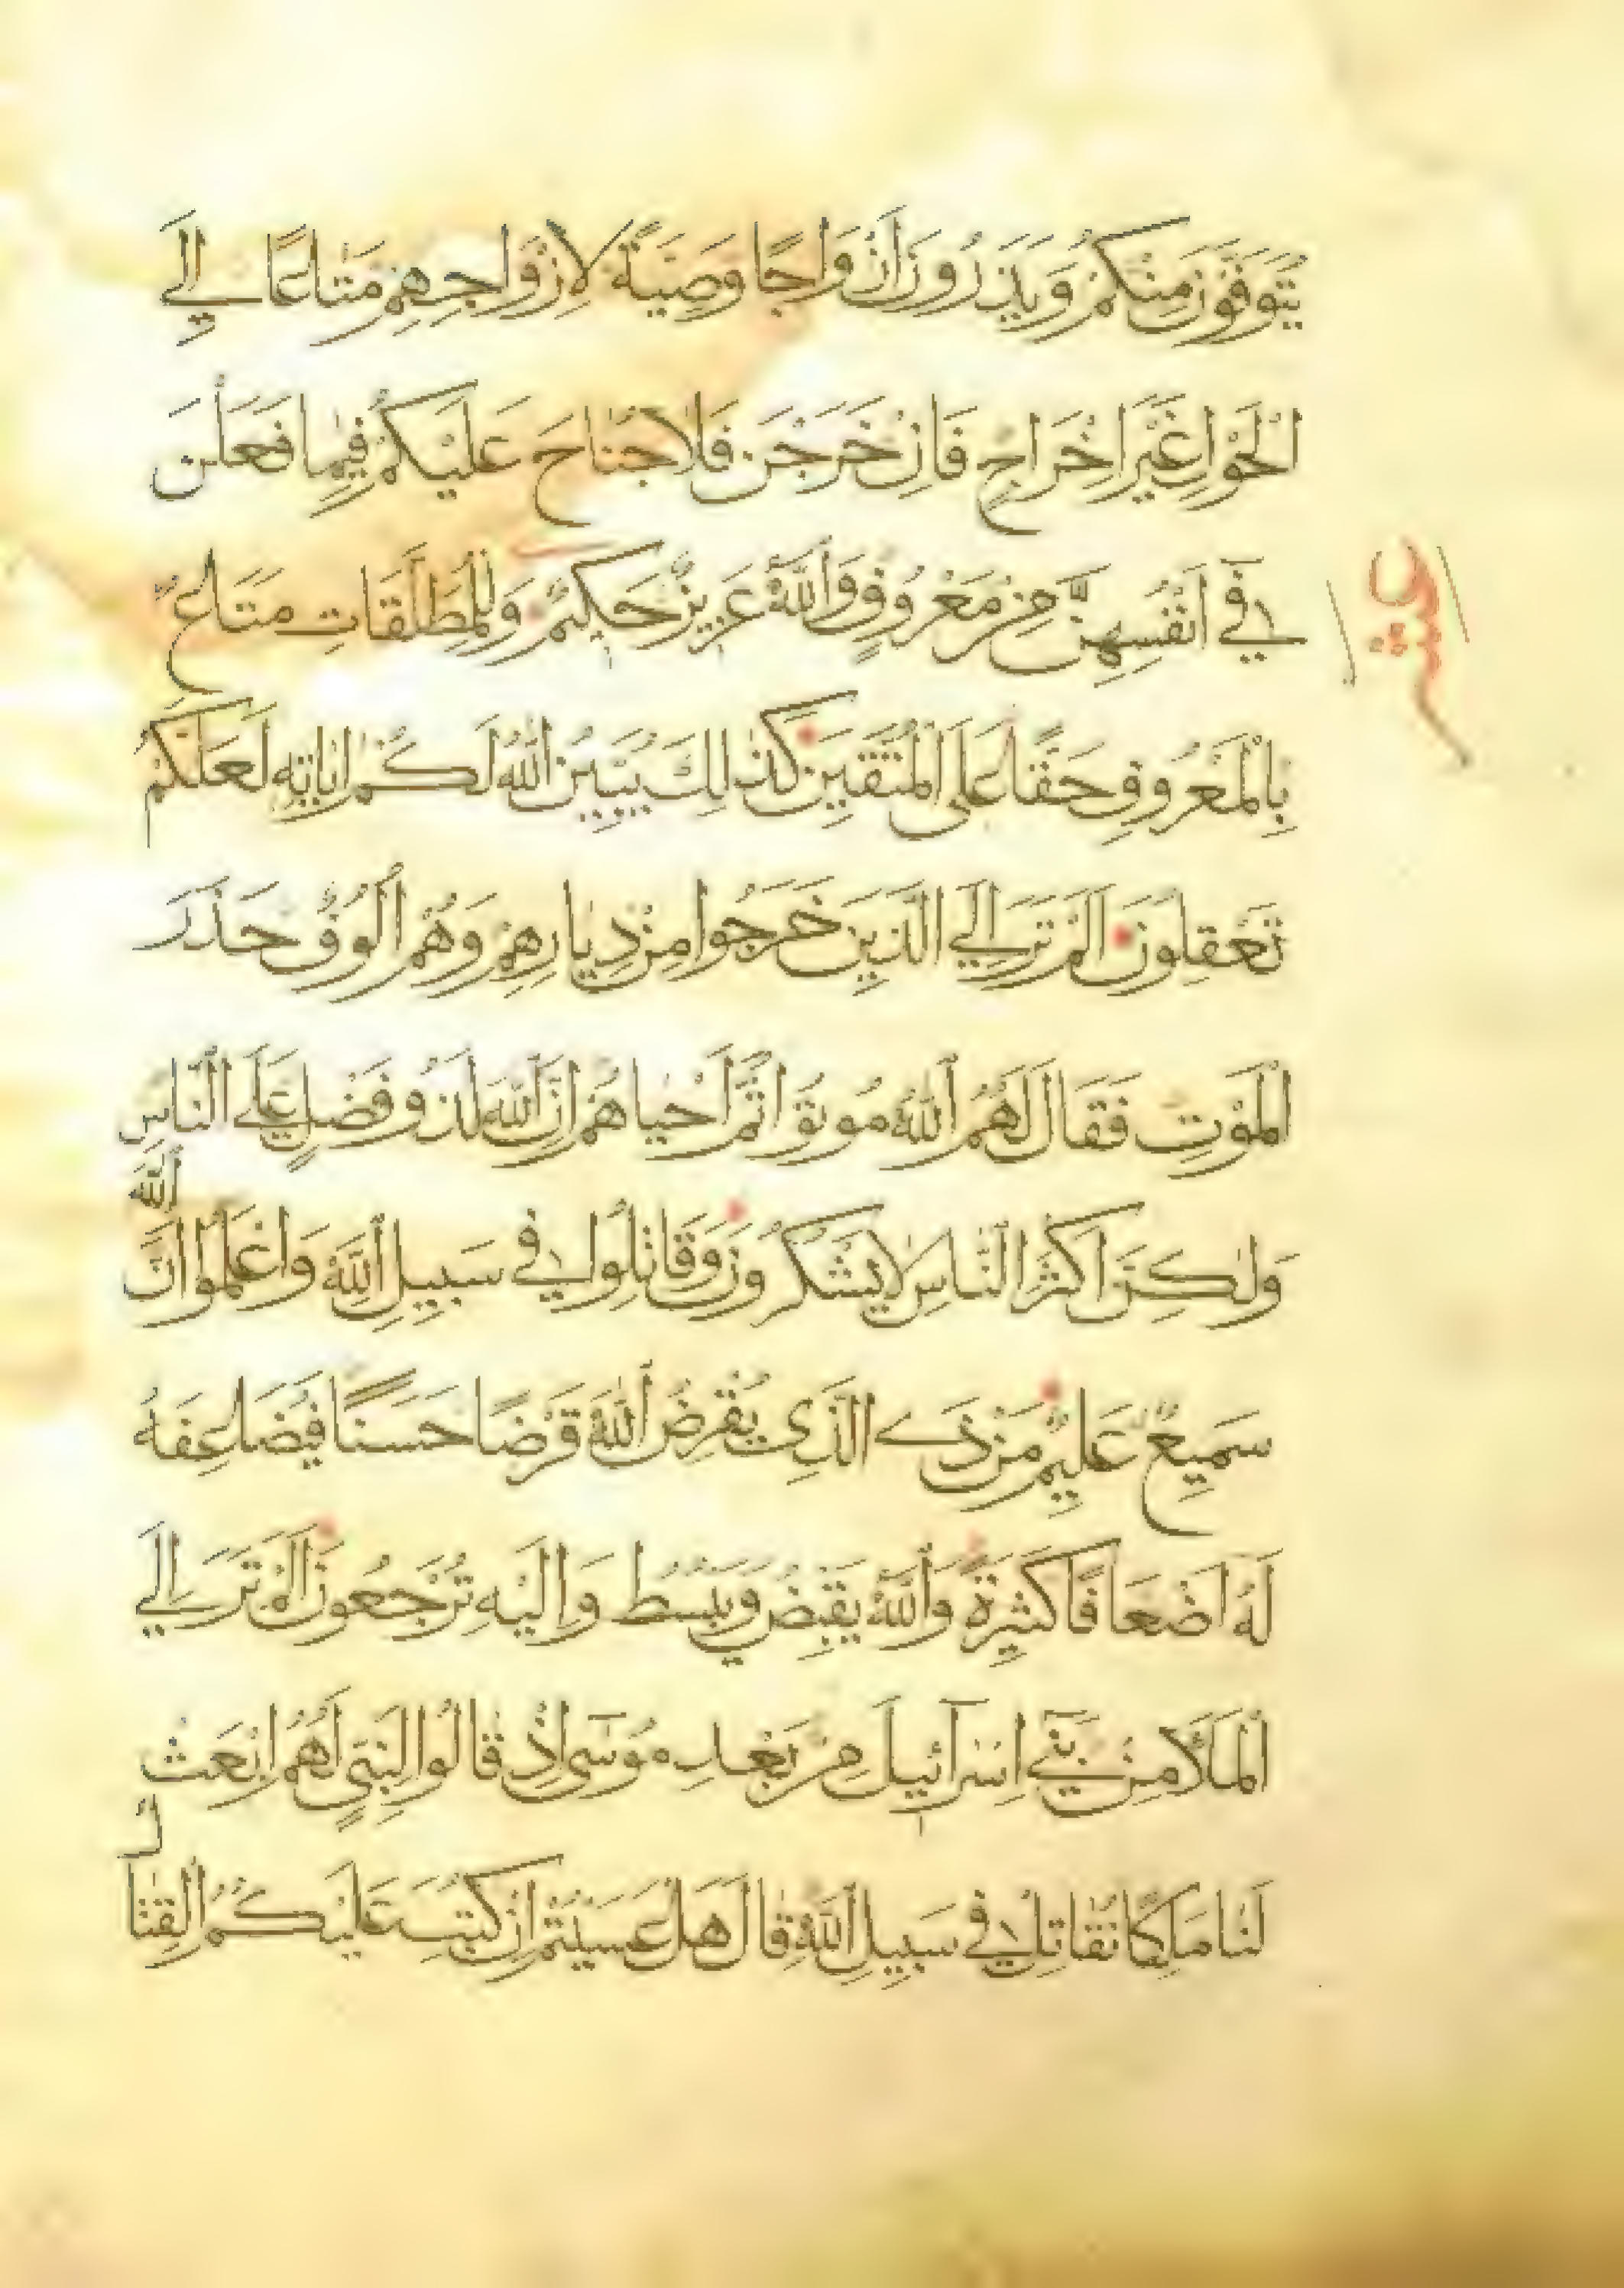 يُتَوَفَّوْنَ مِنْكُمْ وَيَذَرُونَ أَزْوَاجًا وَصِيَّةً لِأَزْوَاجِهِمْ مَتَاعًا إِلَى
الْحَوْلِ غَيْرَ إِخْرَاجٍ فَإِنْ خَرَجْنَ فَلَا جُنَاحَ عَلَيْكُمْ فِيمَا فَعَلْنَ
فِي أَنْفُسِهِنَّ مِنْ مَعْرُوفٍ وَاللَّهُ عَزِيزٌ حَكِيمٌ وَلِلْمُطَلَّقَاتِ مَتَاعٌ
بِالْمَعْرُوفِ حَقًّا عَلَى الْمُتَّقِينَ كَذَلِكَ يُبَيِّنُ اللَّهُ لَكُمْ ايَاتِهِ لَعَلَّكُمْ
تَعْقِلُونَ الَمْ تَرَ إِلَى الَّذِينَ خَرَجُوا مِنْ دِيَارِهِمْ وَهُمْ أُلُوفٌ حَذَرَ
الْمَوْتِ فَقَالَ لَهُمُ اللَّهُ مُوتُوا ثُمَّ أَحْيَاهُمْ إِنَّ اللَّهَ لَذُو فَضْلٍ عَلَى النَّاسِ
وَلَكِنَّ اكْثَرَ النَّاسِ لَا يَشْكُرُونَ وَقَاتِلُوا فِي سَبِيلِ اللَّهِ وَاعْلَمُوا انَّ اللَّهَ
سَمِيعٌ عَلِيمٌ مَنْ ذَا الَّذِي يُقْرِضُ اللَّهَ قَرْضًا حَسَنًا فَيُضَاعِفَهُ
لَهُ اضْعَافًا كَثِيرَةً وَاللَّهُ يَقْبِضُ وَيَبْسُطُ وَإِلَيْهِ تُرْجَعُونَ الَمْ تَرَ إِلَى
الْمَلَأِ مِنْ بَنِي إِسْرَآئِيلَ مِنْ بَعْدِ مُوسَى إِذْ قَالُوا لِنَبِيٍّ لَهُمُ ابْعَثْ
لَنَا مَلِكًا نُقَاتِلْ فِي سَبِيلِ اللَّهِ قَالَ هَلْ عَسَيْتُمْ إِنْ كُتِبَ عَلَيْكُمُ الْقِتَالُ